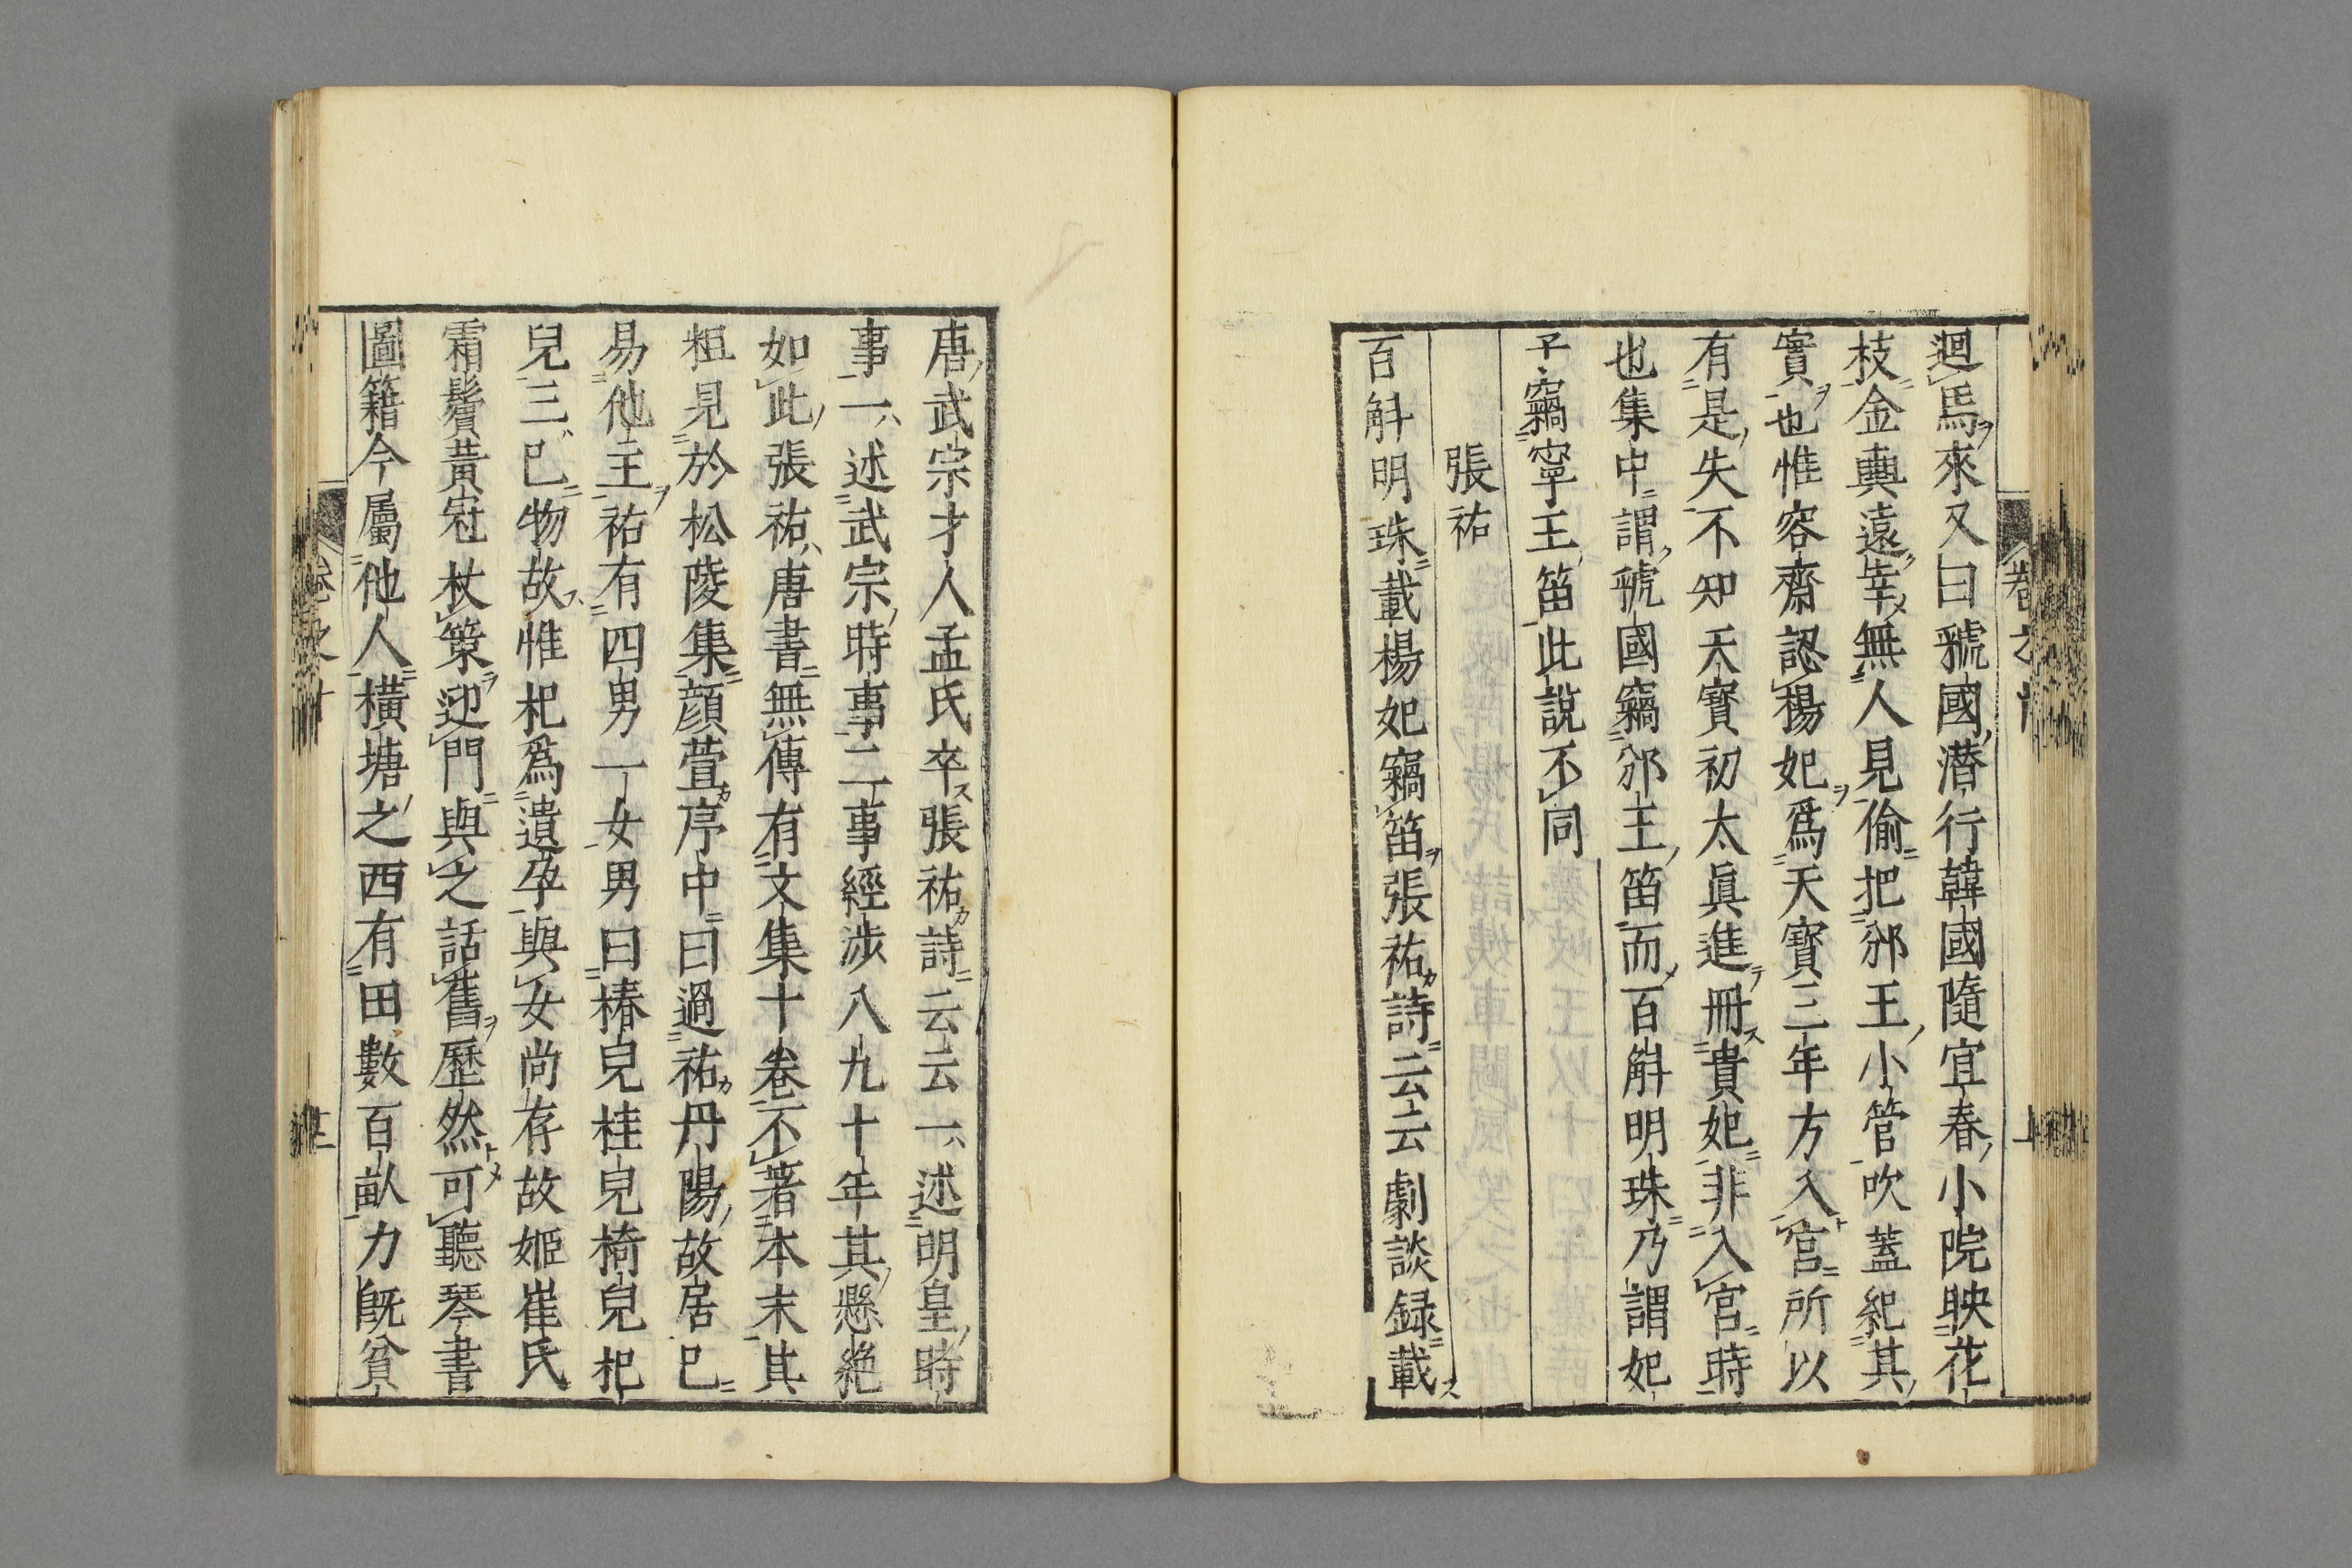 迴馬來又曰虢國潜行韓國隨宜春小院映花
枝金輿遠幸無人見偷把邠王小管吹蓋紀其
實也惟容齋認楊妃爲天寳三年方入宮所以
有是失不知天寳初太眞進冊貴妃非入宮時
也集中謂虢國竊邠王笛而百斛明珠乃謂妃
子竊寧王笛此説不同
張祐
百斛明珠載楊妃竊笛張祐詩云云劇談録載
唐武宗才人孟氏卒張祐詩云云一述明皇時
事一述武宗時事二事經渉八九十年其懸絶
如此張祐唐書無傳有文集十卷不著本末其
粗見於松陵集顔萱序中曰過祐丹陽故居已
易他主祐有四男一女男曰椿兒桂兒椅兒杞
兒三已物故惟杞爲遺孕與女尚存故姫崔氏
霜鬢黄冠杖策迎門與之話舊歷然可聽琴書
圖籍今屬他人橫塘之西有田數百畝力既貧